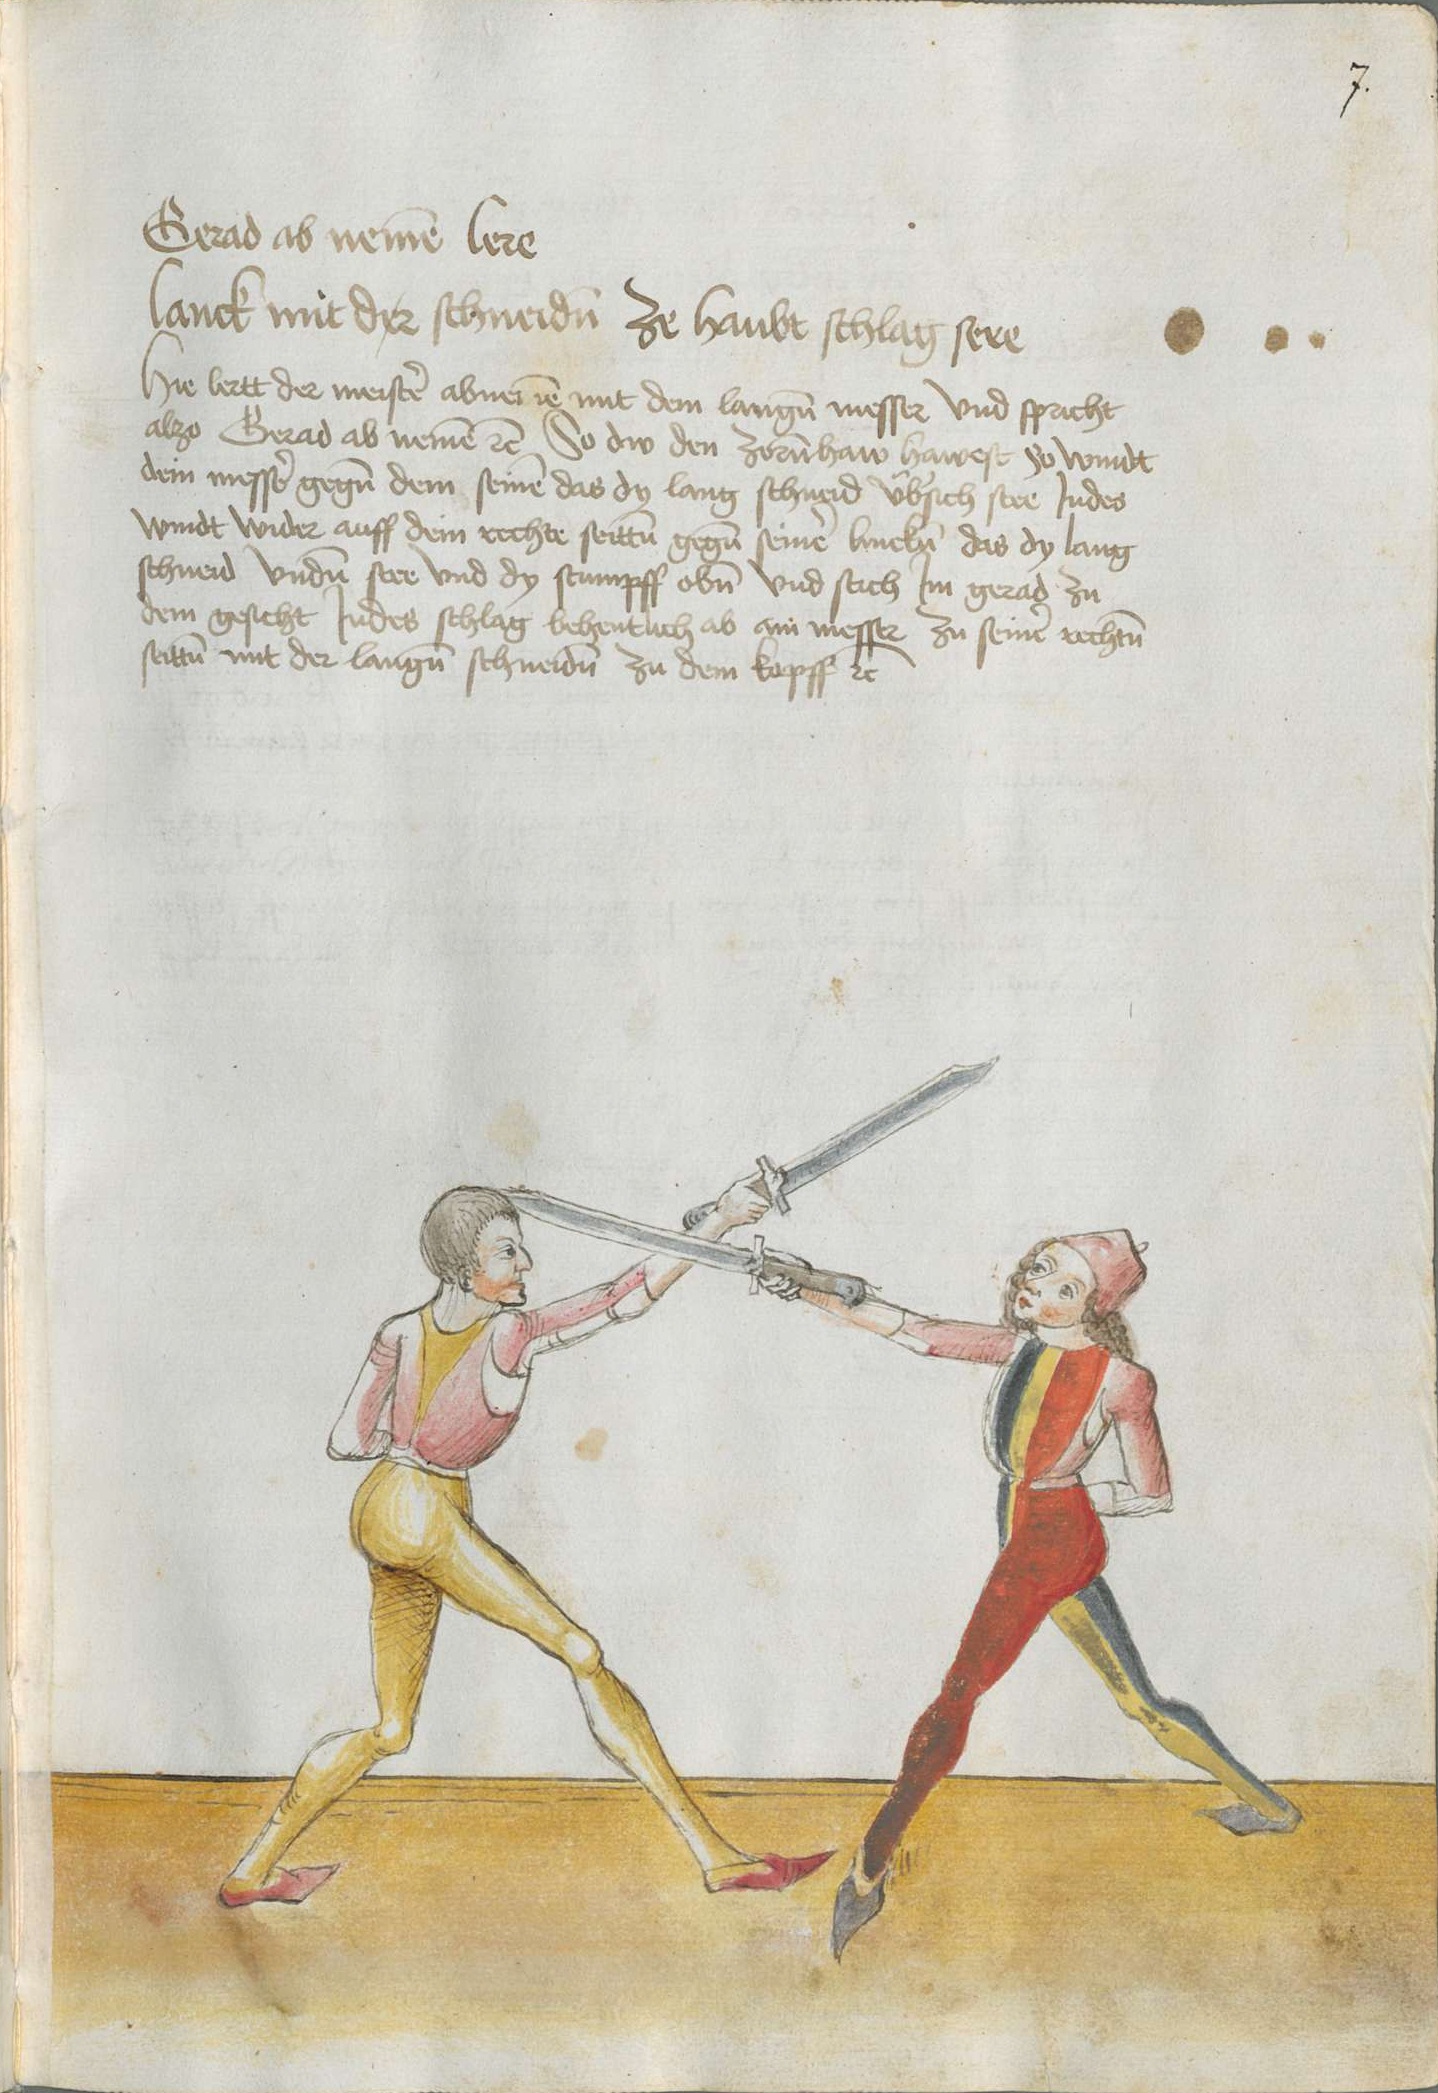 7.
Gerad ab nemē lere
lanck mit der schneidn̄ ze haubt schlag sere
Hie lertt der meist̄ abnemē mit dem langn̄ messer vnd spricht
alzo Gerad ab nemē ꝛc̄ So dw den zorn̄haw hawest so windt
dein messr̄ gegn̄ dem seinē das dy lang schneid vb̄sich stee Indes
windt wider auff dein rechte seittn̄ gegn̄ seinr̄ linckn̄ das dy lang
schneid vndn̄ stee vnd dy stumpff obn̄ vnd stich Im gerad zu
dem gesicht Indes schlag behentlich ab am messer zu seinr̄ rechtn̄
seittn̄ mit der langn̄ schneidn̄ zu dem kopff ꝛc̄